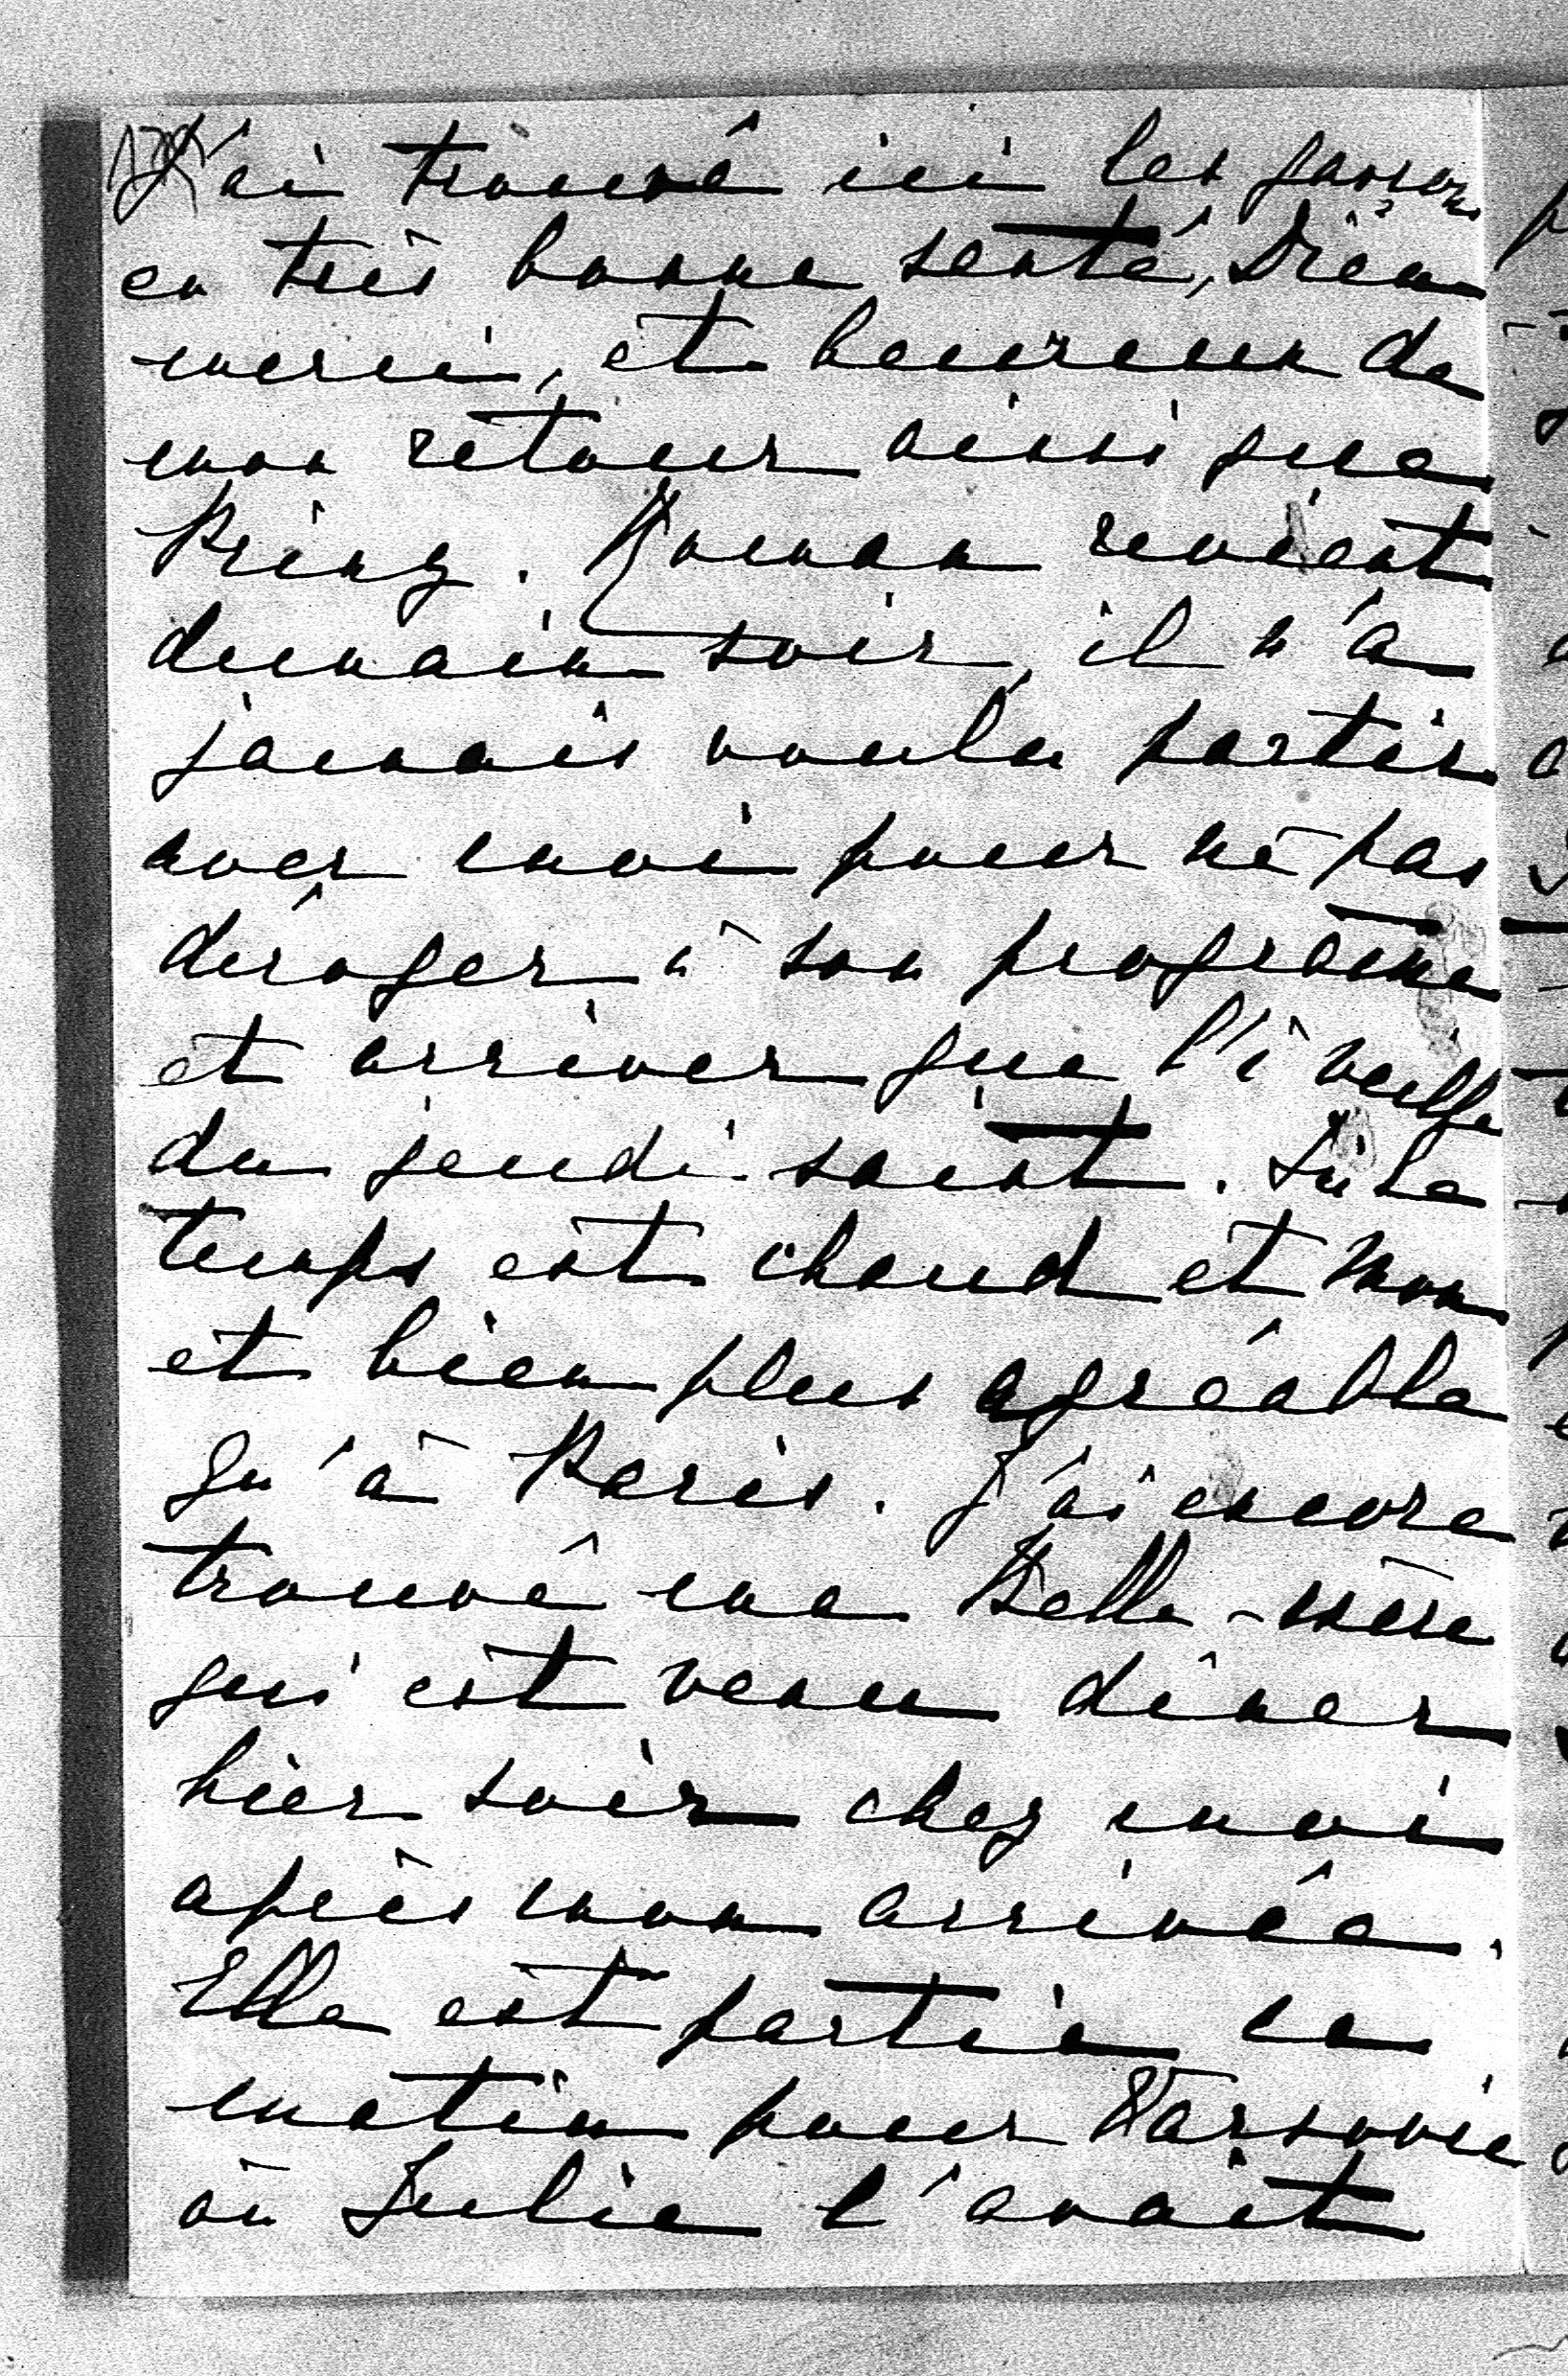 J'ai trouvé ici les garçons
en très bonne senté, Dieu
merci, et heureux de
mon retour ainsi que
Prinz. Roman revient
demain soir, il n'a
jamais voulu partir
avec moi pour ne pas
déroger à son programe
et arriver que l'à veille
du jeudi saint. Ici le
temps est chaud et mou
et bien plus agréable
qu'à Paris. J'ai encore
trouvé ma Belle-mère
qui est venu dîner
hier soir chez moi
après mon arrivée.
Elle est partie ce
matin pour Varsovie
où Julie l'avait